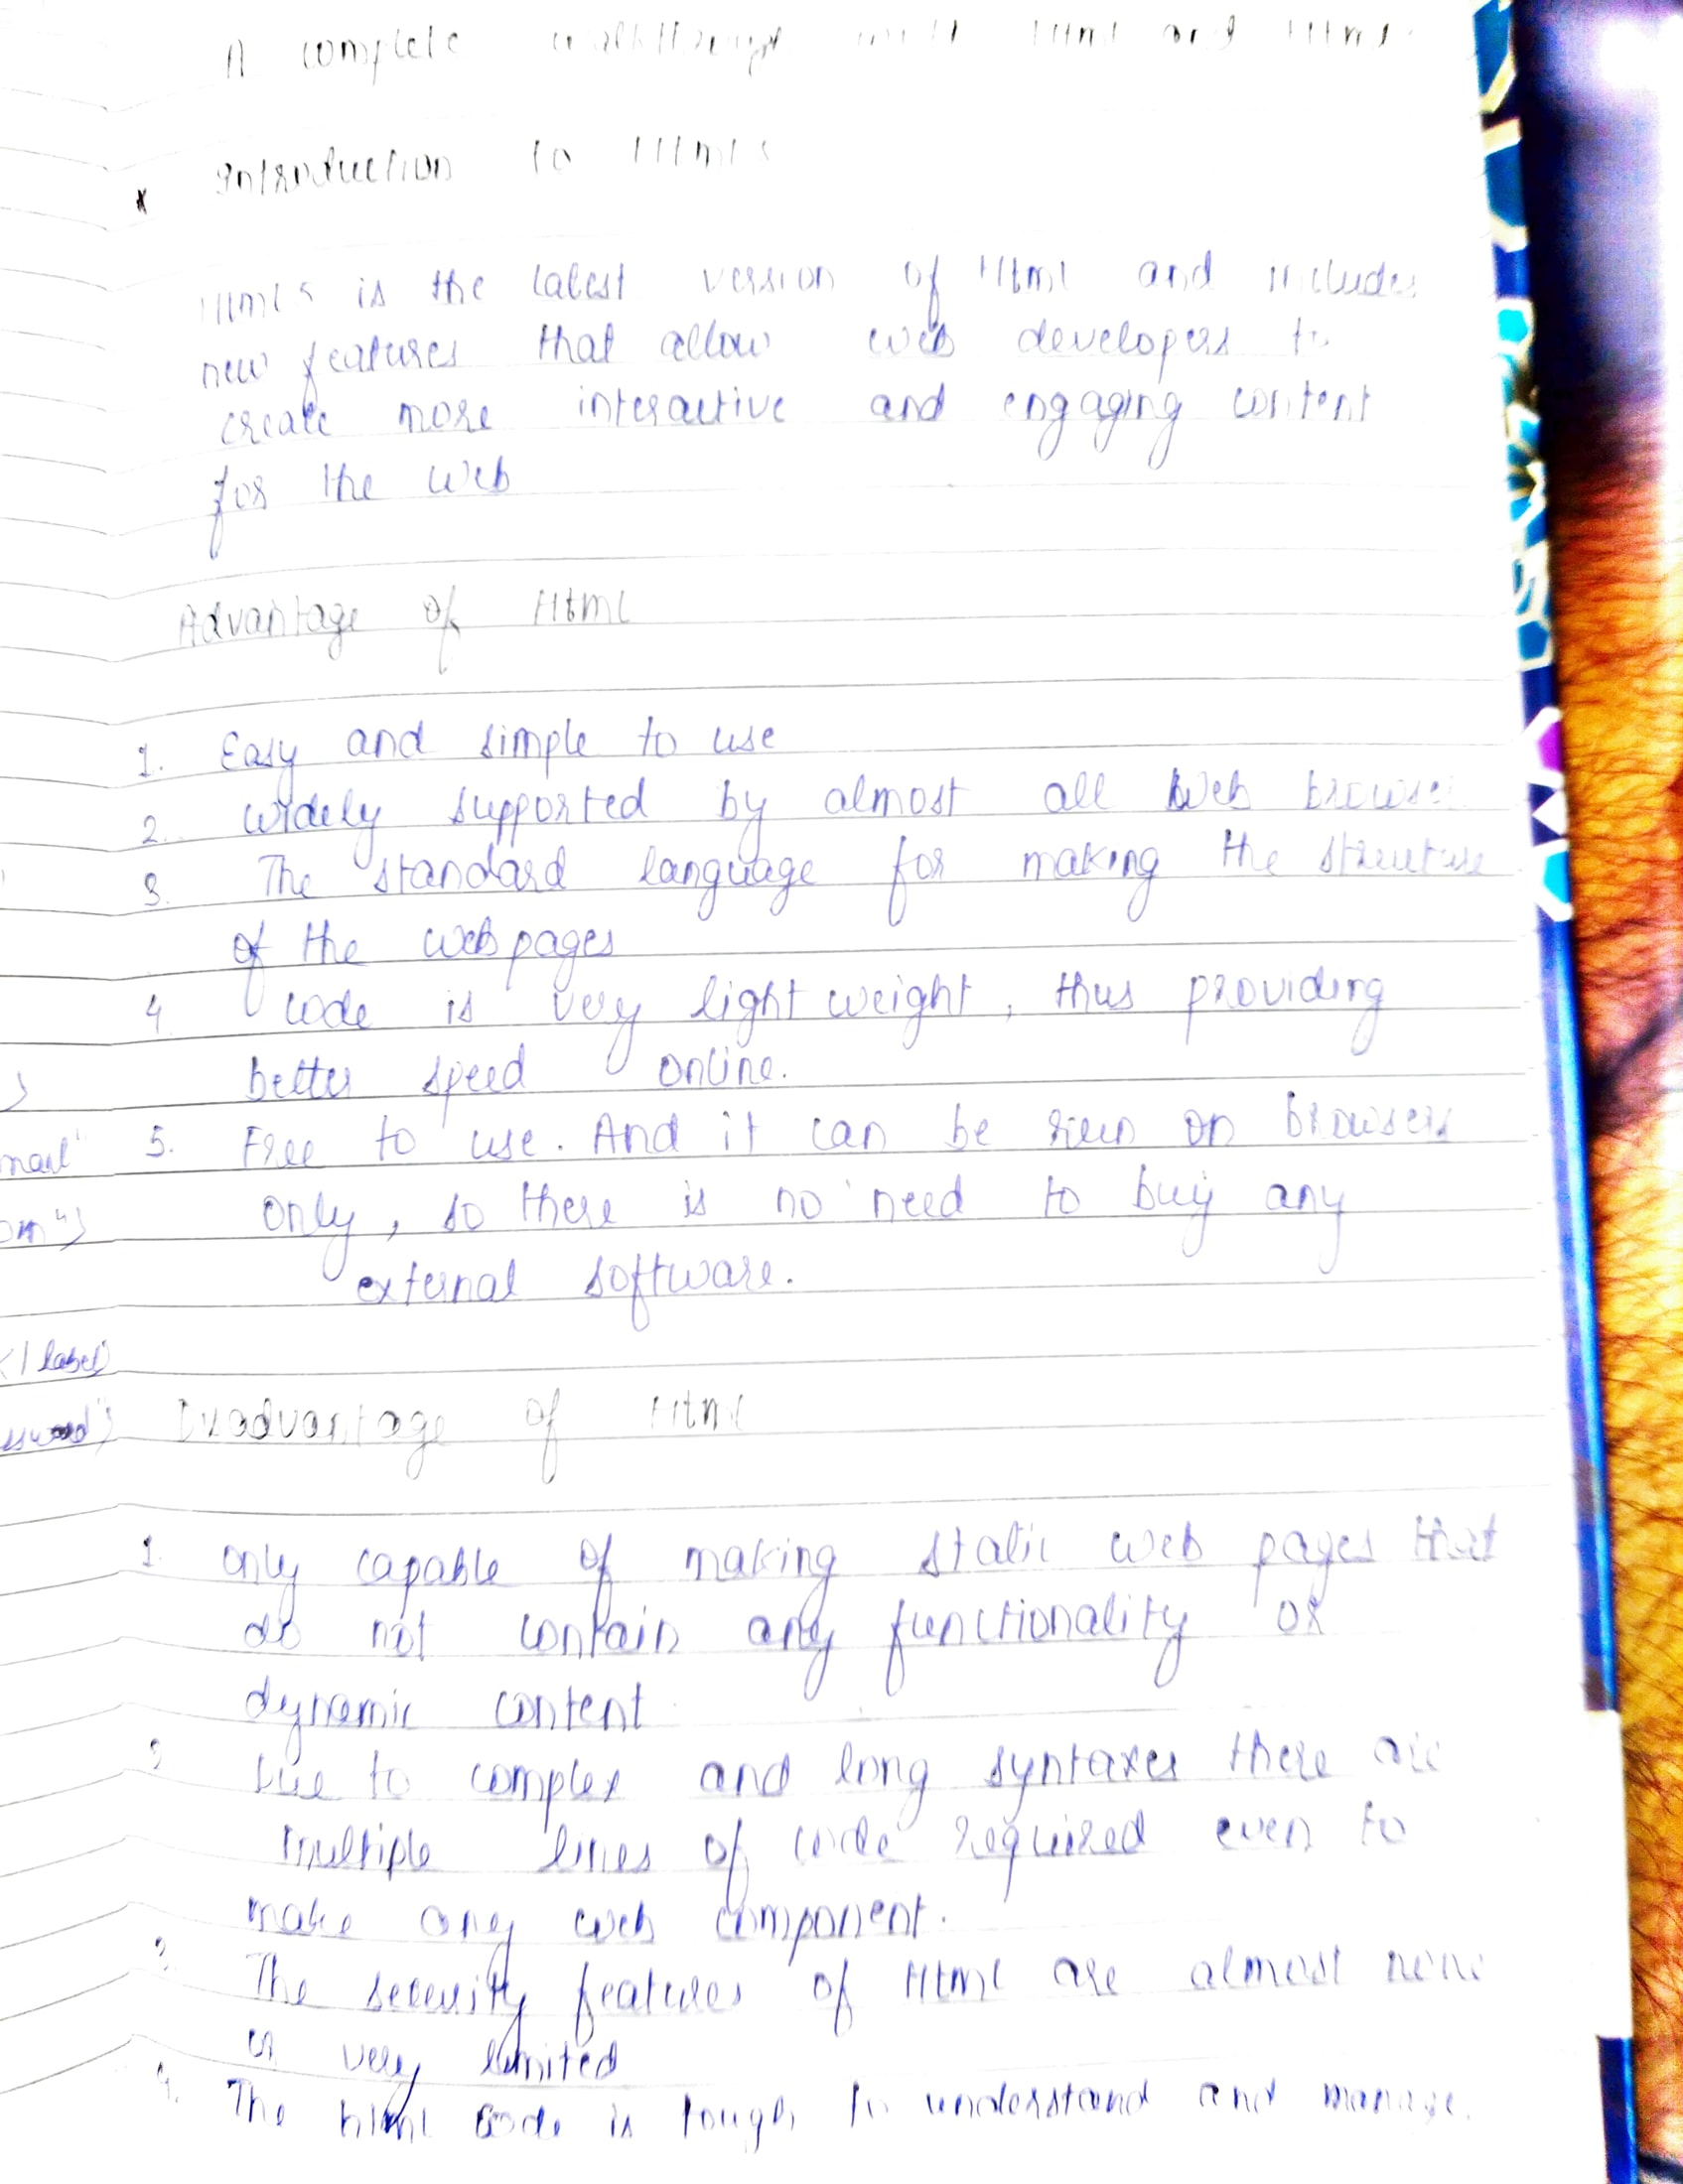 A complete walkthrough with Html and Html5
* Introduction to Html5
Html5 is the latest version of Html and includes
new features that allow web developers to
create more interactive and engaging content
for the web
Advantage of Html
1. Easy and simple to use
2. widely supported by almost all Web browse
3. The standard language for making the structure
of the webpages
4 code is very light weight, thus providing
better speed online.
5. Free to use. And it can be run on browsers
only, so there is no need to buy any
external software.
Disadvantage of Html
1. only capable of making static web pages that
do not contain any functionality or
dynamic content
2 Due to complex and long syntaxes there are
multiple lines of code required even to
make any web component.
3. The security features of Html are almost none
or very limited
4. The html code is tough to understand and manage.
mail"
om">
</label